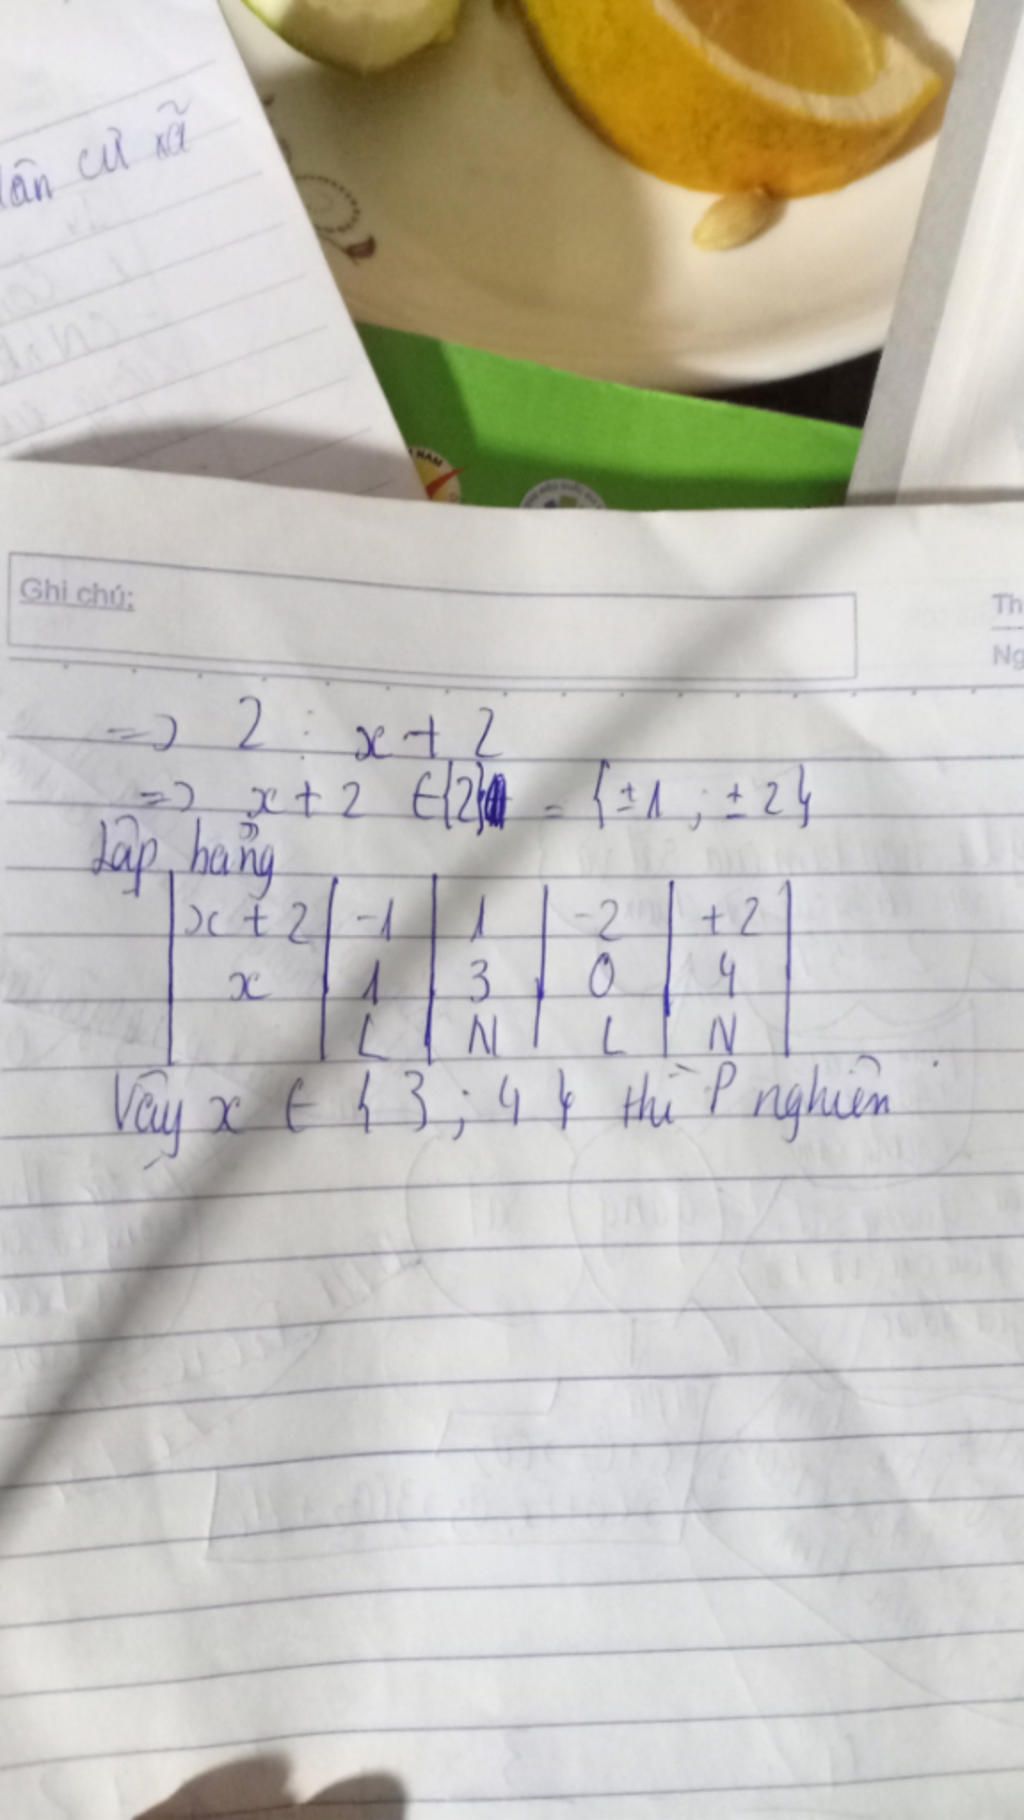 cư xã
NAM
Ghi chú:
Th
Ng
=> 2 ⋮ x + 2
=> x + 2 ∈ {2} = {±1 ; ±2}
Lập bảng
x + 2 | -1 | 1 | -2 | +2
x | 1 | 3 | 0 | 4
L | N | L | N
Vậy x ∈ { 3 ; 4 } thì P nghiên